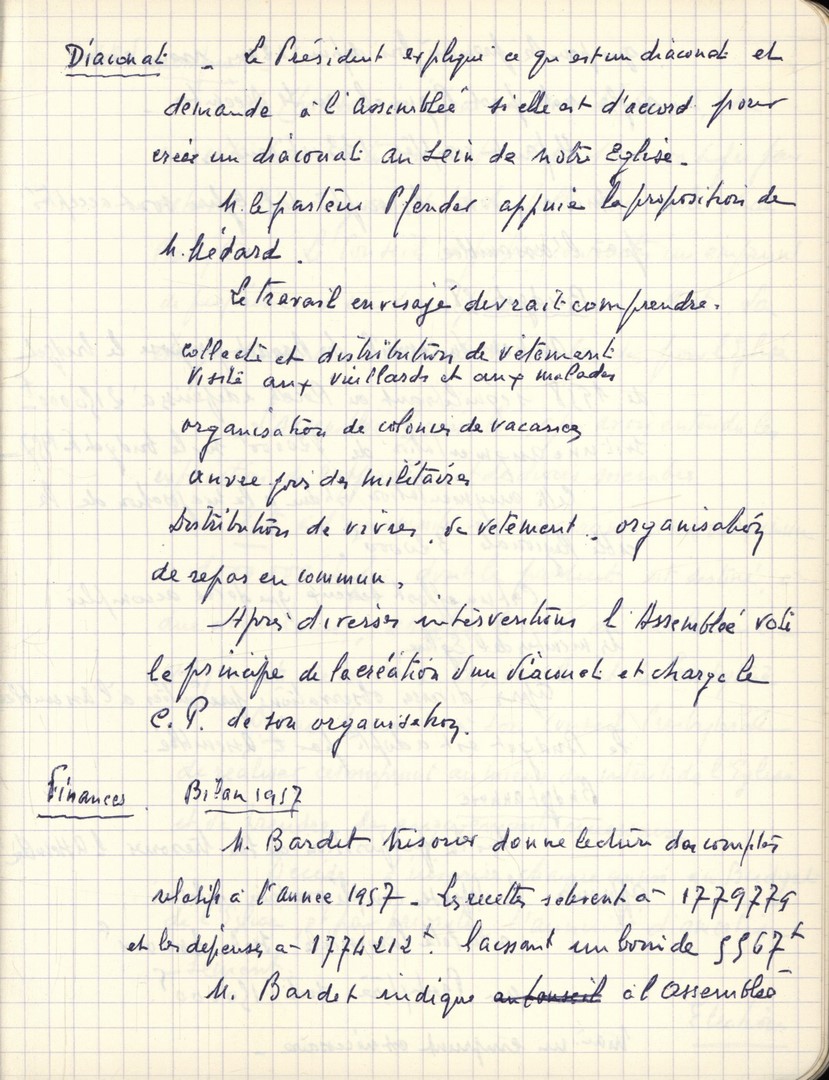 Diaconat - Le Président explique ce qu'est un diaconat et
demande à l'assemblée si elle est d'accord pour
créer un diaconat au sein de notre Eglise.
M. le pasteur Pfender appuie la proposition de
M. Médard.
Le travail envisagé devrait comprendre.
collecte et distribution de vêtements
Visite aux vieillards et aux malades
organisation de colonies de vacances
des militaires
Distribution de vivres, de vêtement. organisation
de repas en commun,
Après diverses interventions l'Assemblée vote
le principe de la création d'un diaconat et charge le
C. P. de son organisation.
Finances. Bilan 1957
M. Bardet trésorier donne lecture des comptes
relatifs à l'année 1957 - Les recettes s'élevent à - 1779779
et les dépenses à - 1774212 f. laissant un boni de 5567 f
M. Bardet indique au conseil à l'assemblée